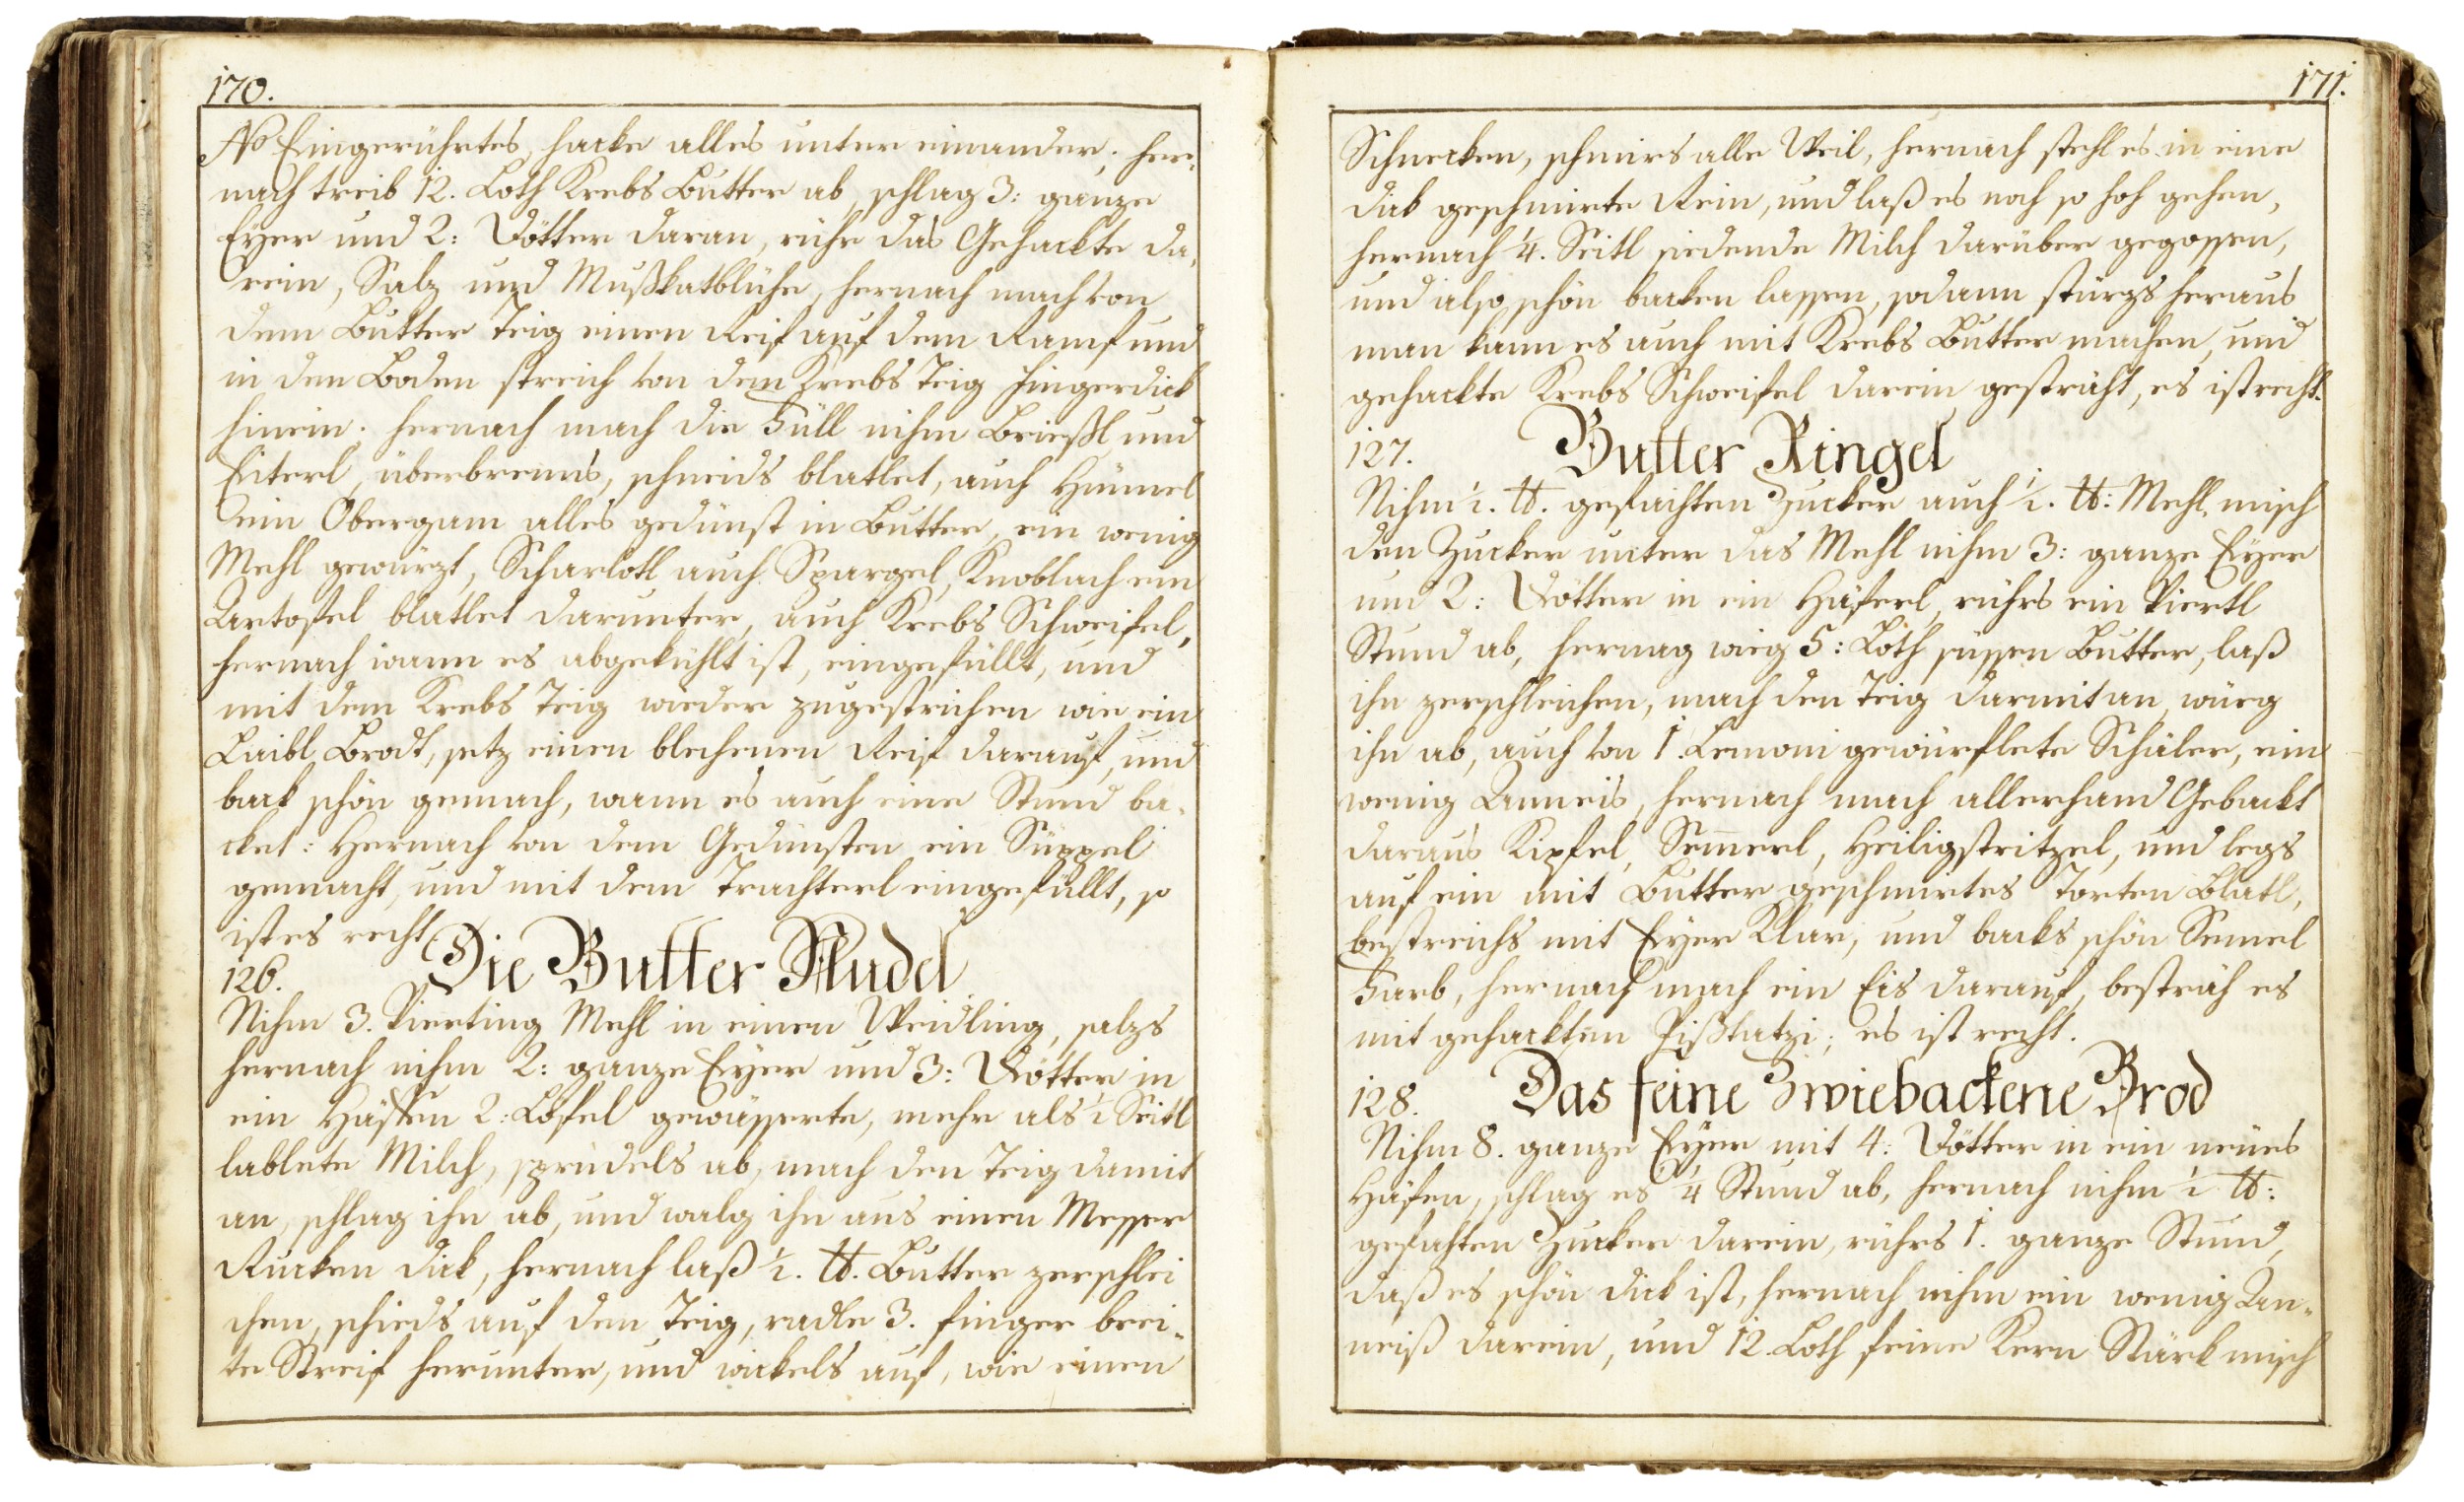 170.
No Eingerührtes, hacke alles unter einander. her¬
nach treib 12. Loth Krebs Butter ab, schlag 3: ganze
Eyer und 2: Dötter daran, rühr das Gehackte da¬
rein, Salz und Mußkatblühe, hernach mach von
dem Butter Teig einen Reif auf dem Ramf und
in den Boden streich von dem Krebs Teig fingerdick
hinein. hernach mach die Füll nihm Briessl und
Eiterl, überbrenns, schneids blatlet, auch Hünnel
ein Obergam alles gedünst in Butter, ein wenig
Mehl gewürzt, Scharlotl auch Spargel, Knoblach ein
Artofel blatlet darunter, auch Krebs Schweifel,
hernach wann es abgekühlt ist, eingefüllt, und
mit dem Krebs Teig wieder zugestrichen wie ein
Laibl Brodt, setz einen blechenen Reif darauf, und
back schön gemach, wann es auch eine Stund ba¬
cket: Hernach von dem Gedünsten ein Süppel
gemacht, und mit dem Trachterl eingefüllt, so
ist es recht.
126. Die Butter Nudel
Nihm 3. Vierting Mehl in einen Weidling, salzs
hernach nihm 2: ganze Eyer und 3: Dötter in
ein Häffen 2: Löfel gewässerte, mehr als ½ Seitl
lablete Milch, sprudels ab, mach den Teig damit
an, schlag ihn ab, und walg ihn aus einen Messer
Rucken dick, hernach laß ½. ℔. Butter zerschlei
chen, schieds auf den Teig, radle 3. finger brei¬
te Streif herunter, und wickels auf, wie einen
171.
Schnecken, schmirs alle Weil, hernach stehl es in eine
dick geschmirte Rein, und laß es noch so hoh gehen,
hernach ¼. Seitl siedende Milch darüber gegossen,
und also schön backen lassen, sodann stürzs heraus
man kann es auch mit Krebs Butter machen, und
gehackte Krebs Schweifel darein gesträht, es ist recht.
127. Butter Ringel
Nihm ½. ℔. gefachten Zucker auch ½. ℔: Mehl, misch
den Zucker unter das Mehl nihm 3: ganze Eyer
und 2: Dötter in ein Häferl, rührs ein Viertl
Stund ab, hernag wieg 5: Loth süssen Butter, laß
ihn zerschleichen, mach den Teig darmit an, würg
ihn ab, auch von 1. Lemoni gewürflete Schäler, ein
wenig Anneis, hernach mach allerhand Gebackt
daraus Kipfel, Sem̄erl, Heiligstritzel, und legs
auf ein mit Butter geschmirtes Torten Blatl,
bestreichs mit Eyer Klar, und backs schön Semel
Farb, hernach mach ein Eis darauf, besträh es
mit gehackten Pißtatzi; es ist recht.
128. Das feine Zwiebackene Brod
Nihm 8. ganze Eyer mit 4: Dötter in ein neües
Häfen, schlag es ¼ Stund ab, hernach nihm ½ ℔:
gefachten Zucker darein, rührs 1. ganze Stund,
daß es schön dick ist, hernach nihm ein wenig An¬
neiß darein, und 12. Loth feine Kern Stärk misch